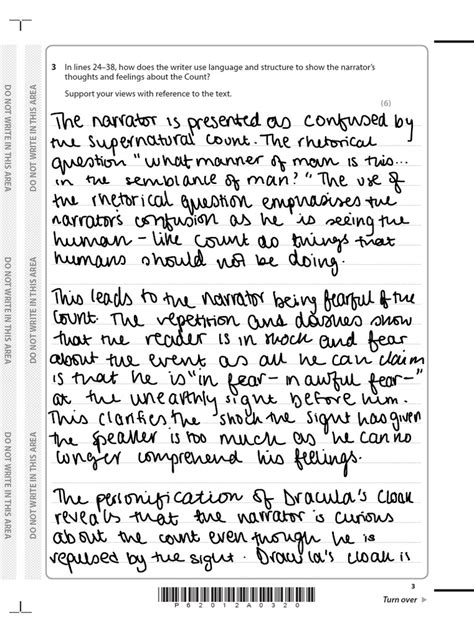 3 In lines 24–38, how does the writer use language and structure to show the narrator's
thoughts and feelings about the Count?
Support your views with reference to the text.
(6)
The narrator is presented as confused by
the supernatural count. The rhetorical
question "what manner of man is this...
in the semblance of man?" The use of
the rhetorical question emphasises the
narrator's confusion as he is seeing the
human-like count do things that
humans should not be doing.
This leads to the narrator being fearful of the
count. The repetition and dashes show
that the reader is in shock and fear
about the event as all he can claim
is that he is "in fear – in awful fear –"
at the unearthly sight before him.
This clarifies the shock the sight has given
the speaker is too much as he can no
longer comprehend his feelings.
The personification of Dracula's cloak
reveals that the narrator is curious
about the count even though he is
repulsed by the sight. Dracula's cloak is
DO NOT WRITE IN THIS AREA
DO NOT WRITE IN THIS AREA
DO NOT WRITE IN THIS AREA
DO NOT WRITE IN THIS AREA
DO NOT WRITE IN THIS AREA
DO NOT WRITE IN THIS AREA
P 6 2 0 1 2 A 0 3 2 0
3
Turn over